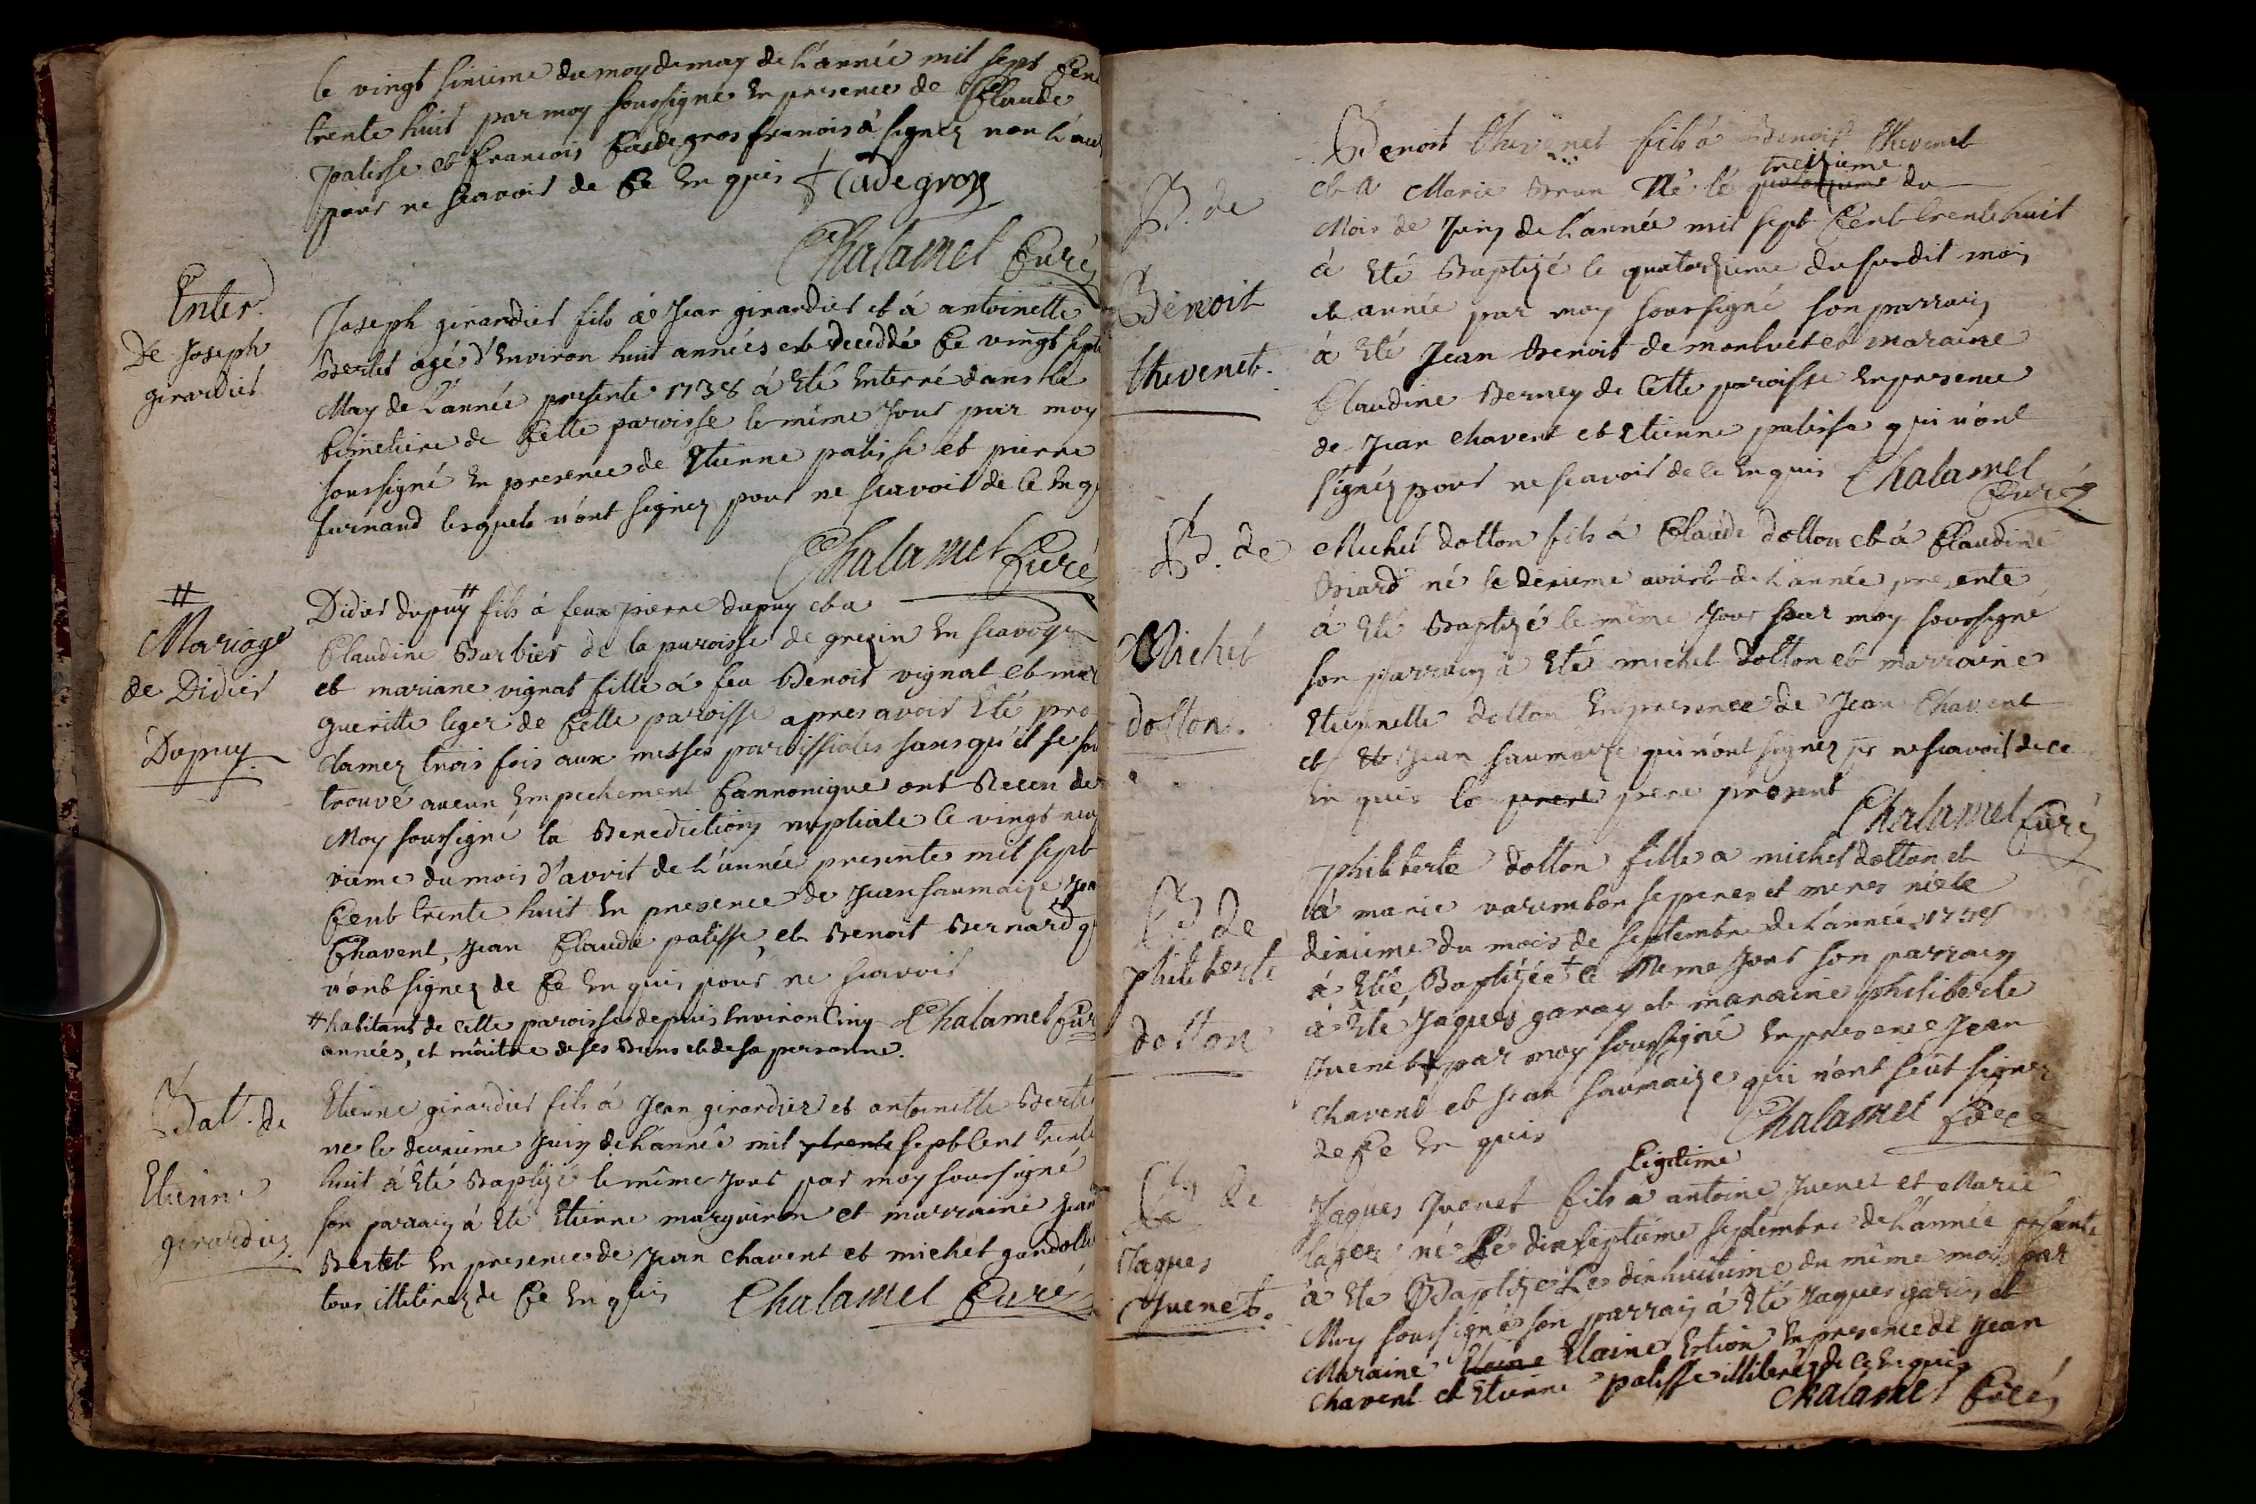 le vingt sixieme du moy de may de l'année mil sept Cen
trente huit par moy soussigné En presence de Claude
palisse et francois Cadegros francois à signez non l'au
pour ne scavoir de Ce Enquis + Cadegros
Chalamel Curé
Enter.
De Joseph
girardier
Joseph girardier fils à Jean girardier et à antoinette
Bertet agé d'Environ huit années est deceddé Ce vingt sept
May de l'année presente 1738 à Eté Enterré dans le
Cimetiere de Cette paroisse le même Jour par moy
soussigné En presence de Etienne palisse et pierre
furnand lesquels n'ont signez pour ne scavoir de Ce Enq
Chalamel Curé
#
Mariage
de Didier
Dupuy
Didier dupuy # fils à feux pierre dupuy et a
Claudine Barbier de la paroisse de grezin En Savoye
et mariane vignat fille à feu Benoit vignat et mar
gueritte leger de Cette paroisse apres avoir Eté pro
clamez trois fois aux messes paroissiales sans qu'il se soi
trouvé aucun Empechement Cannonique ont Receu de
Moy soussigné la Benediction nuptiale le vingt neu
vieme du mois d'avril de l'année presente mil sept
Cent trente huit En presence de Jean Saumaize Jean
Chavent, Jean Claude palisse, et Benoit Bernard q
n'ont signez de Ce Enquis pour ne scavoir
# habitant de Cette paroisse depuis Environ Cinq Chalamel Cur
années, et mâitre de ses Biens et de sa personne.
Bat. de
Etienne
girardier
Etienne girardier fils à Jean girardier et antoinette Berte
ne le deuxieme Juin de l'année mil trente sept Cent trente
huit à Eté Baptizé le même Jour par moy soussigné
son parrain à Eté Etienne marguiron et marraine Jean
Bertet En presence de Jean Chavent et michel gondolle
tous illiterez de Ce Enquis Chalamel Curé
B. de
Benoit
thevenet.
Benoit thevenet fils à Benoit thevenet
et a Marie Brun Né le quatorzieme treizieme du
Mois de Juin de l'année mil sept Cent trente huit
à Eté Baptizé le quatorzieme du susdit mois
et année par moy soussigné son parrain
à Eté Jean Benoit de montvet et maraine
Claudine Berney de Cette paroisse En presence
de Jean Chavent et Etienne palisse qui n'ont
signéz pour ne scavoir de Ce Enquis Chalamel
Curé
B. de
Michel
dotton.
Michel dotton fils à Claude dotton et à Claudine
Briard né le dixieme avirt de l'année presente
à Eté Baptizé le même Jour par moy soussigné
son parrain à Eté michel dotton et marraine
Etiennette dotton En presence de Jean Chavent
et et Jean saumaize qui n'ont signez pr ne scavoir de ce
Enquis le prere pere present
Chalamel Curé
B de
philiberte
dotton
philiberte dotton fille a michel dotton et
à marie varembon se peres et meres néele
dixieme du mois de septembre de l'année 1738
à Eté Baptizée + le Meme Jour son parrain
à Eté Jaques garay et maraine philiberte
Juenet + par moy soussigné En presence Jean
Chavent et jean Saumaize qui n'ont seüt signer
de Ce Enquis
Chalamel Curé
B de
Jaques
Juenet.
Legitime
Jaques Juenet fils a antoine Juenet et Marie
lager né Le dixseptieme septembre de l'année presente
à Eté Baptizé Le dixhuitieme du même mois par
Moy soussigné son parrain à Eté Jaques garin et
Maraine Elaine Elaine Ertion En presence de Jean
Chavent et Etienne palisse illiterés de Ce Enquis
Chalamel Curé